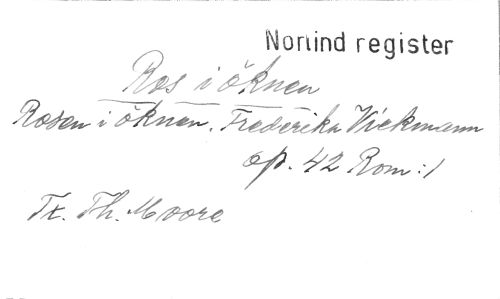 Norlind register
Ros i öknen
Rosen i öknen. Frederika Wickmann
op. 42 Rom:1
Tx. Th. Moore